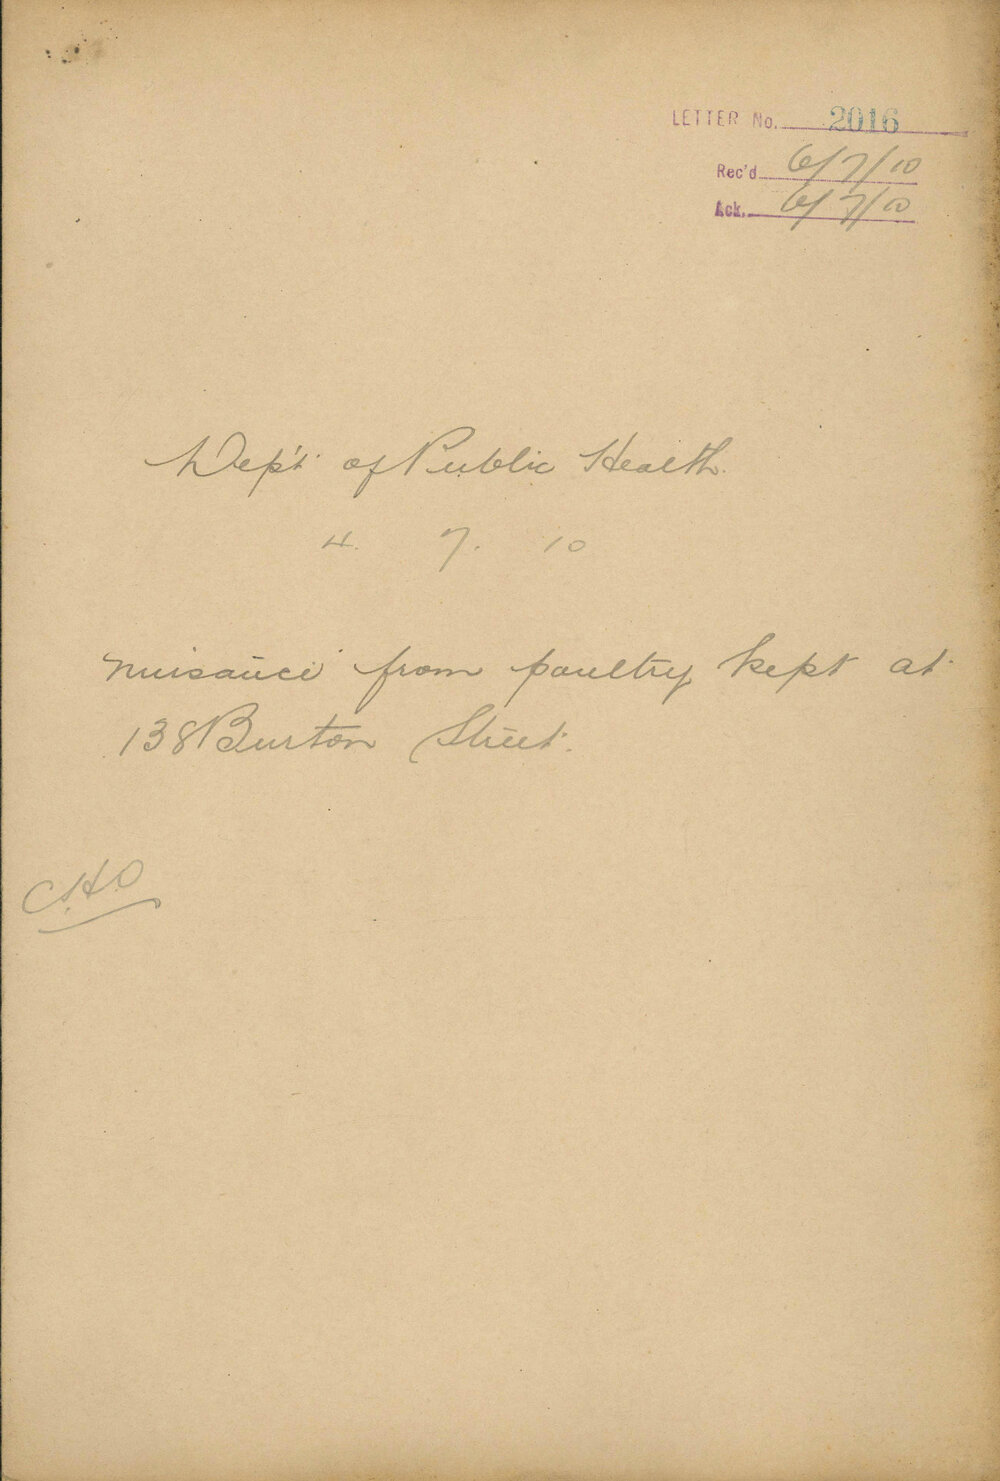 LETTER No. 2016
Rec'd 6/7/10
Ack. 6/7/10
Dep't of Public Health.
4. 7. 10
nuisance from poultry kept at
138 Burton Street.
C.H.O